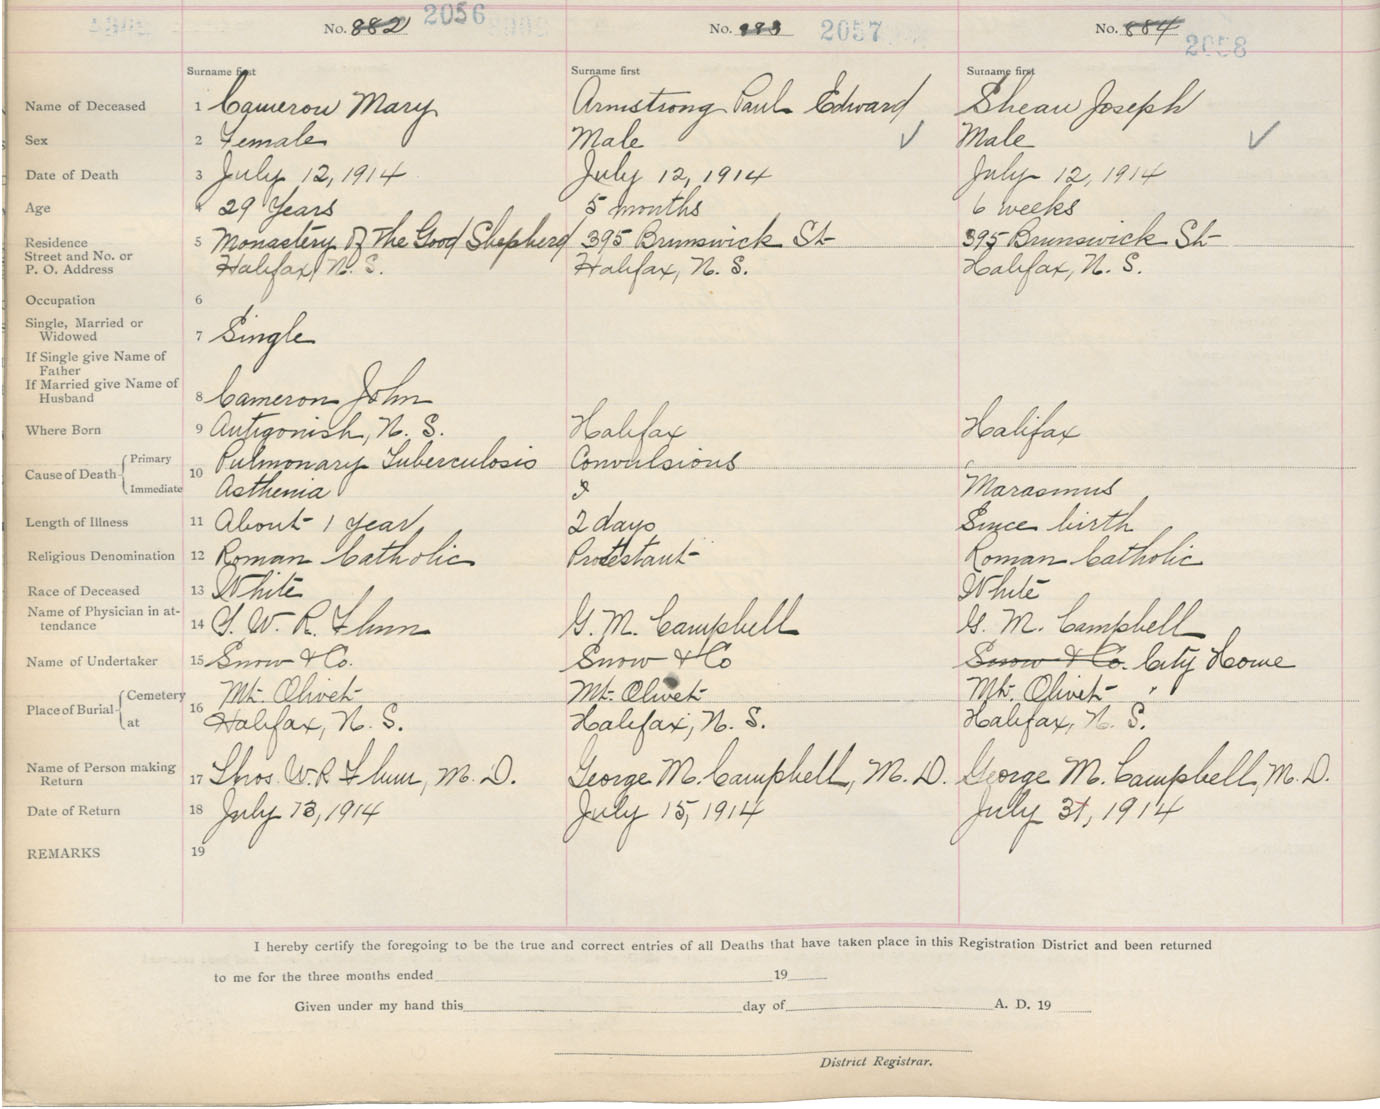 No. 882 2056 No. 883 2057 No. 884 2058
Surname first Surname first Surname first
Name of Deceased 1 Cameron Mary Armstrong Paul Edward Shean Joseph
Sex 2 Female Male ✓ Male ✓
Date of Death 3 July 12, 1914 July 12, 1914 July 12, 1914
Age 4 29 Years 5 months 6 weeks
Residence 5 Monastery of The Good Shepherd 395 Brunswick St 395 Brunswick St
Street and No. or
P. O. Address Halifax, N. S. Halifax, N. S. Halifax, N. S.
Occupation 6
Single, Married or
Widowed 7 Single
If Single give Name of
Father
If Married give Name of
Husband 8 Cameron John
Where Born 9 Antigonish, N. S. Halifax Halifax
Cause of Death Primary 10 Pulmonary Tuberculosis Convulsions
Immediate Asthenia Marasmus
Length of Illness 11 About 1 year 2 days Since birth
Religious Denomination 12 Roman Catholic Protestant Roman Catholic
Race of Deceased 13 White White
Name of Physician in at-
tendance 14 T. W. R. Flinn G. M. Campbell G. M. Campbell
Name of Undertaker 15 Snow & Co. Snow & Co Snow & Co. City Home
Place of Burial Cemetery 16 Mt. Olivet Mt. Olivet Mt. Olivet
at Halifax, N. S. Halifax, N. S. Halifax, N. S.
Name of Person making
Return 17 Thos. W. R. Flinn, M. D. George M. Campbell, M. D. George M. Campbell, M. D.
Date of Return 18 July 13, 1914 July 15, 1914 July 31, 1914
REMARKS 19
I hereby certify the foregoing to be the true and correct entries of all Deaths that have taken place in this Registration District and been returned
to me for the three months ended 19
Given under my hand this day of A. D. 19
District Registrar.